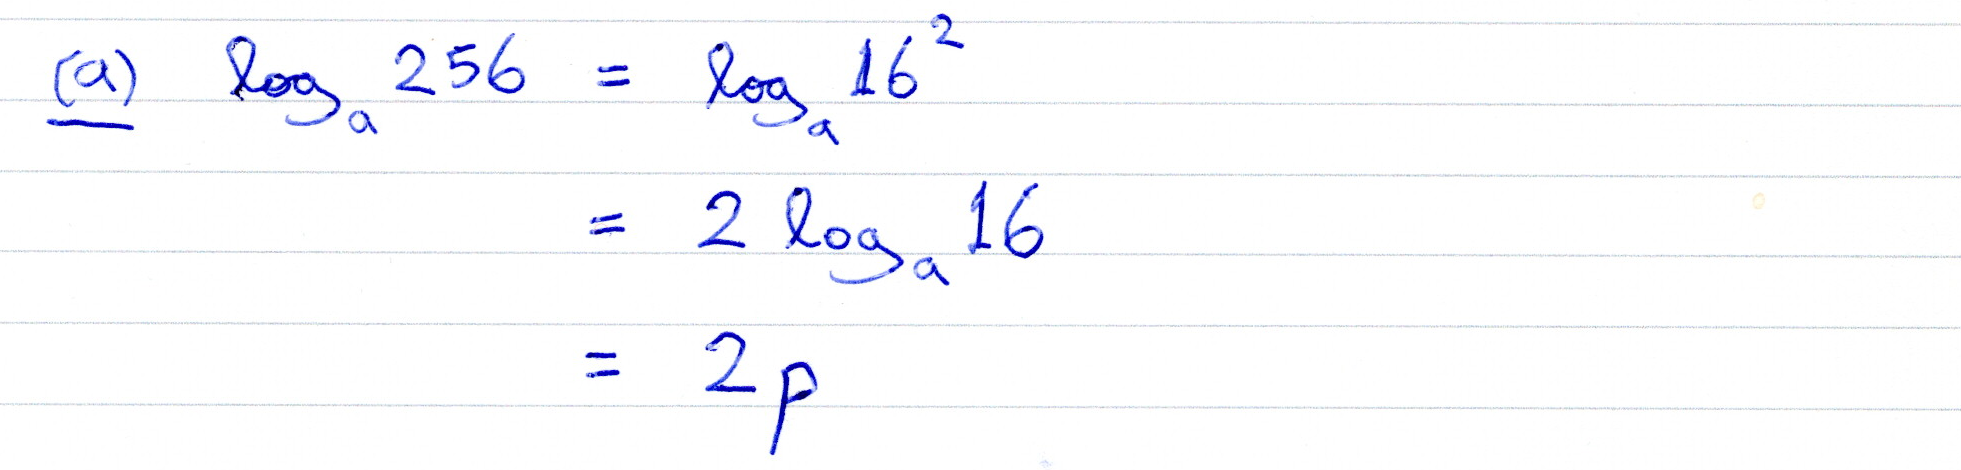 (a) logₐ 256 = logₐ 16²
= 2 logₐ 16
= 2p